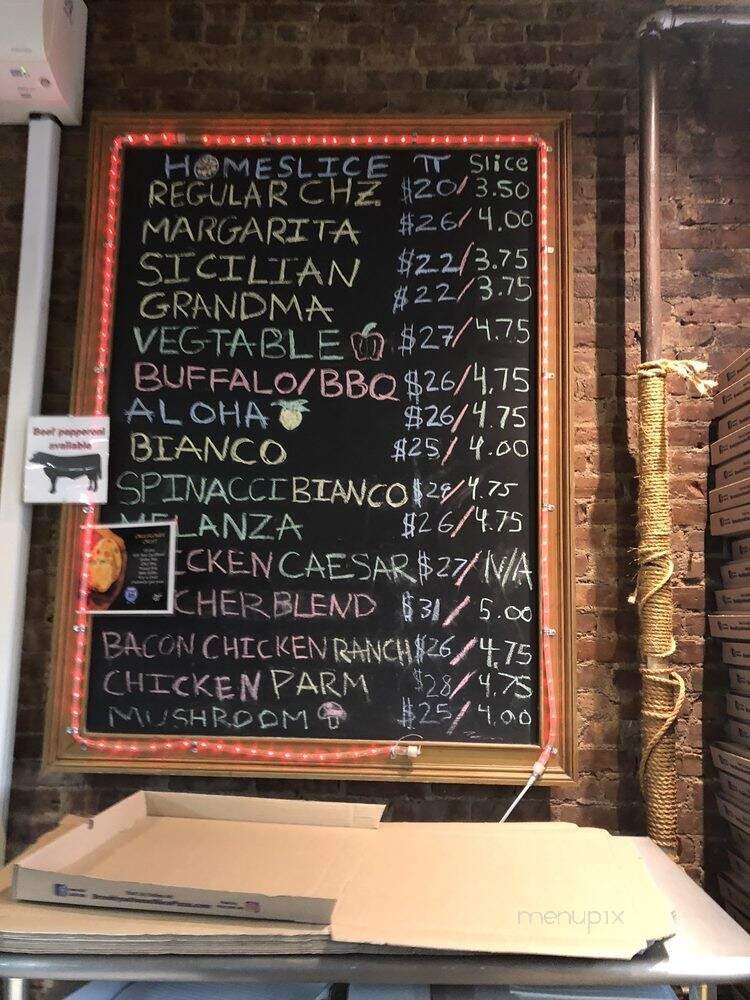 HOMESLICE π Slice
REGULAR CHZ $20/3.50
MARGARITA $26/4.00
SICILIAN $22/3.75
GRANDMA $22/3.75
VEGTABLE $27/4.75
BUFFALO/BBQ $26/4.75
ALOHA $26/4.75
BIANCO $25/4.00
SPINACCI BIANCO /4.75
MELANZA $26/4.75
CKEN CAESAR $27/N/A
CHER BLEND $31/5.00
BACON CHICKEN RANCH $26/4.75
CHICKEN PARM $28/4.75
MUSHROOM $25/4.00
Beef pepperoni
available
menupix